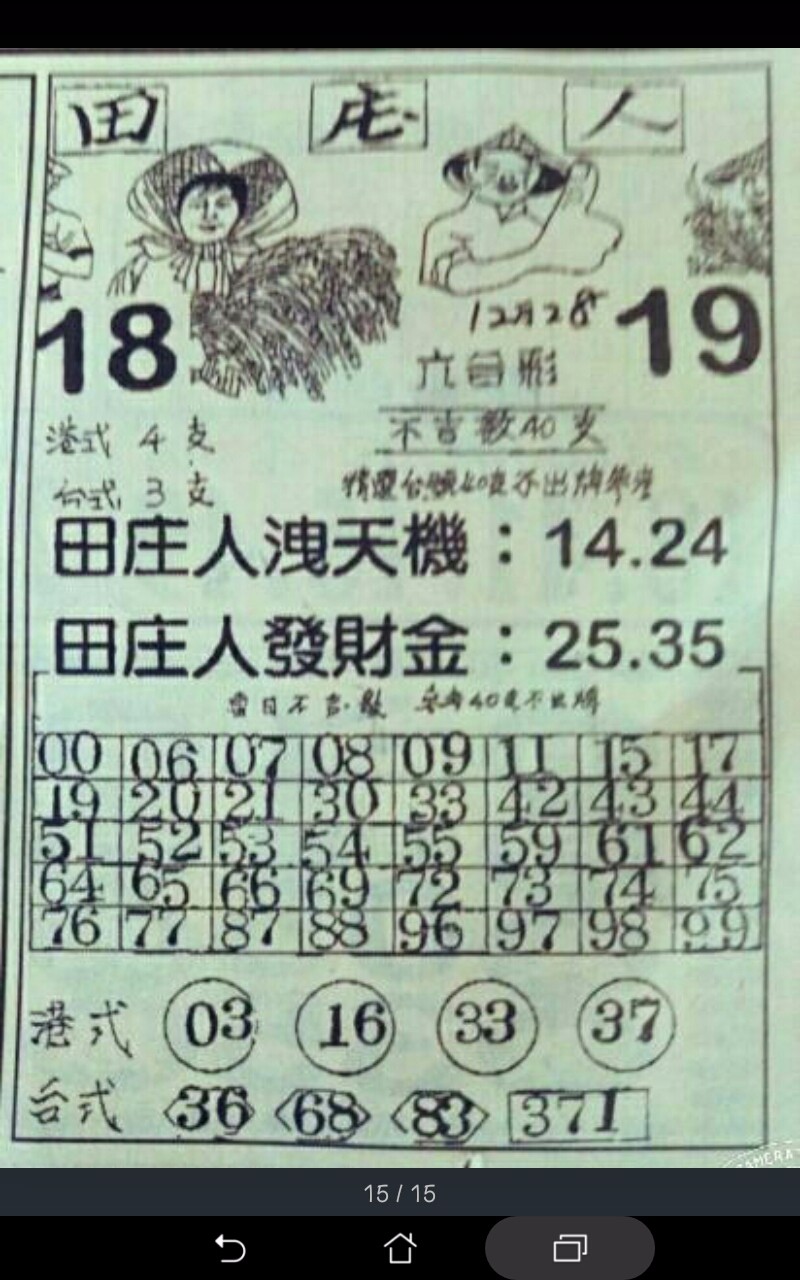 田 庄 人
12月28
18 19
六合彩
港式 4 支
不吉數40支
台式 3 支
精選台號40支不出牌參考
田庄人洩天機：14.24
田庄人發財金：25.35
當日不吉數 參考40支不出牌
00 06 07 08 09 11 15 17
19 20 21 30 33 42 43 44
51 52 53 54 55 59 61 62
64 65 66 69 72 73 74 75
76 77 87 88 96 97 98 99
港式 03 16 33 37
台式 36 68 83 371
CAMERA
15 / 15